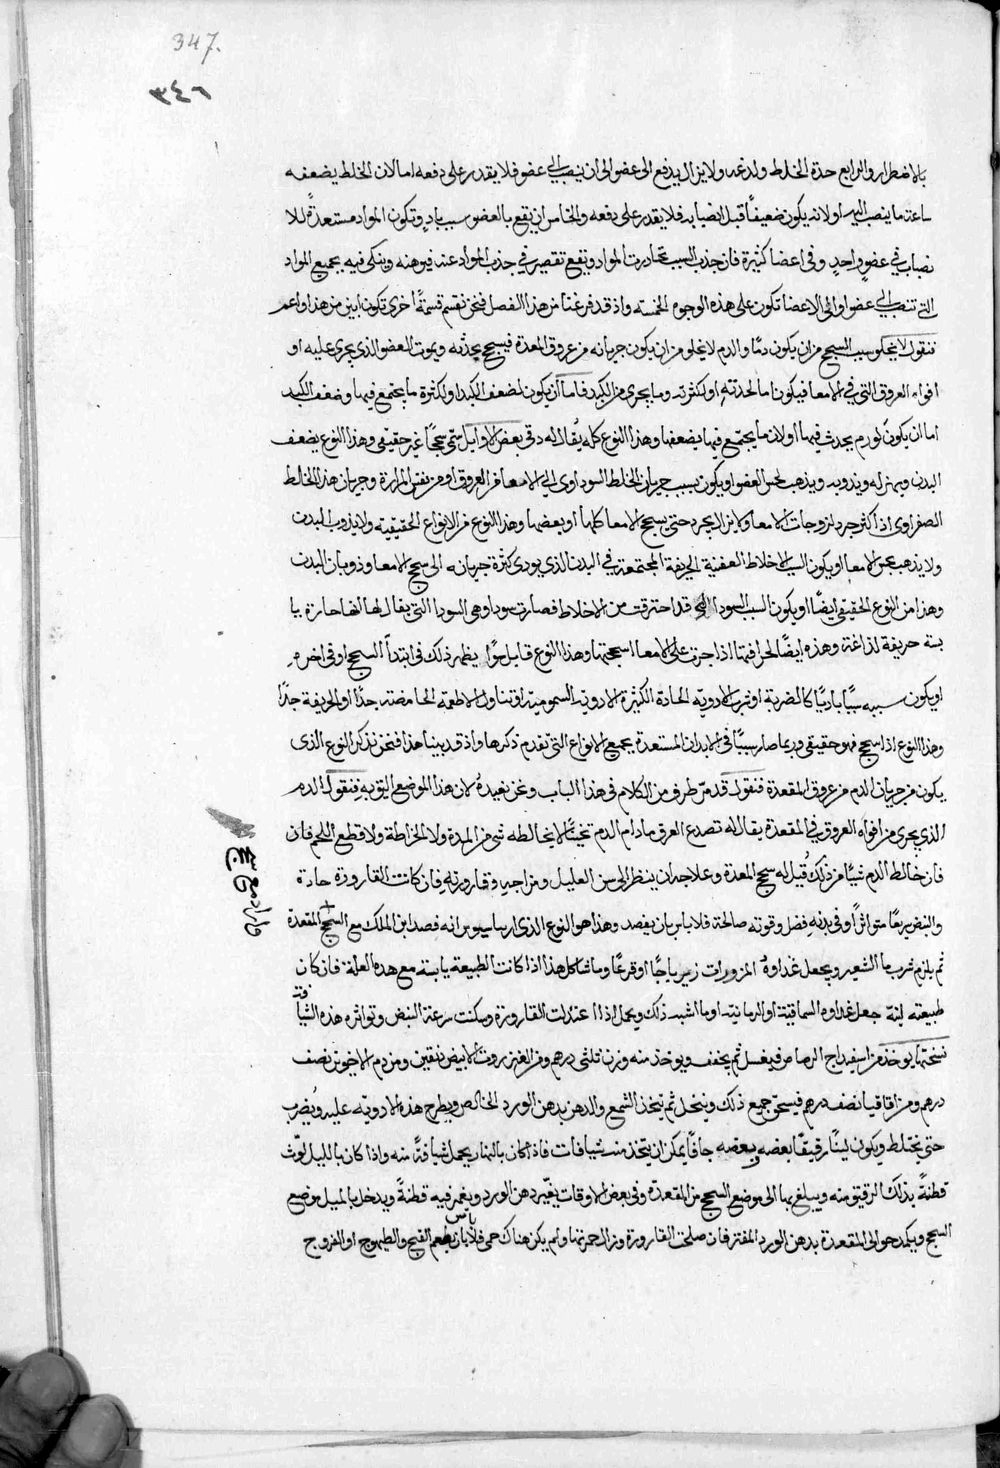 347.
٣٤٦
بالاضطرار والرابع حدة الخلط ولدغه ولا يزال يدفع الى عضو الى ان ينصب الى عضو فلا يقدر على دفعه اما لان الخلط يضعفه
ساعة ما ينصب اليه او لانه يكون ضعيفًا قبل انصبابه فلا يقدر على دفعه والخامس ان يقع بالعضو سبب بادٍ وتكون المواد مستعدةً للا
نصباب في عضوٍ واحدٍ وفى اعضا كثيرة فان جذب السبب تحادرت المواد ويقع تقصير في جذب المواد عنه فيوهنه وينكى فيه بجميع المواد
التى تنصب الى عضو او الى الاعضا تكون على هذه الوجوه الخمسة واذ قد فرغنا من هذا الفصل فنحن نقسم قسمةً اخرى تكون ابين من هذا واعم
فنقول لا يخلو سبب السحج من ان يكون دمًا والدم لا يخلو من ان يكون جريانه من عروق المعدة فيسحج بحدته ويموت للعضو الذى يجرى عليه او
افواه العروق التى في الامعا فيكون اما لحدته او لكثرته وما يجرى من الكبد فاما ان يكون لضعف الكبد او لكثرة ما يجتمع فيها وضعف الكبد
اما ان يكون لورم يحدث فيها او لان ما يجتمع فيها يضعفها وهذا النوع كله يُقال له دق بعض الاوايل سمّى سحجًا غير حقيقى وهذا النوع يضعف
البدن ويهزله ويذوبه ويذهب لحس العضو او يكون بسبب جريان الخلط السوداوى الى الامعا من العروق او من نفس المرارة وجريان هذا الخلط
الصفراوى اذا كثر جرد لزوجات الامعا ولا يزال يجرد حتى يسحج الامعا كلها او بعضها وهذا النوع من الانواع الحقيقية ولا يذوب البدن
ولا يذهب بحس الامعا او يكون السبب الاخلاط العفنية الحريفة المجتمعة في البدن الذى يودى كثرة جريانه الى سحج الامعا وذوبان البدن
وهذا من النوع الحقيقى ايضًا او يكون السبب السودا التى قد احترقت من الاخلاط فصارت سوداوهى السودا التى يقال لها انها حارة يا
بسة حريفة لذاعة وهذه ايضًا لحرافتها اذا جرت على الامعا اسحجتها وهذا النوع قابل جدًا يظهر ذلك فى ابتدا السحج او فى اخره
او يكون سببه سببًا باديًا كالضربة او شرب الادوية الحادة الكثيرة الادوية السمومية او تناول الاطعمة الحامضة جدًا او الحريفة جدًا
وهذا النوع اذا سحج فهو حقيقى وربما صار سببًا فى الابدان المستعدة بجميع الانواع التى تقدم ذكرها واذ قد بينا هذا فنحن نذكر النوع الذى
يكون من جريان الدم من عروق المقعدة فنقول قد مرّ طرف من الكلام فى هذا الباب وغن نعيده لان هذا الموضع اليق به فنقول الدم
الذى يجرى من افواه العروق في المقعدة يقال له تصدع العرق مادام الدم نخينًا لا يخالطه شى من المدة ولا الخراطة ولا قطع اللحم فان
فان خالط الدم شيًا من ذلك قُيل له سحج المعدة وعلاجه ان ينظر الى سن العليل ومزاجه وقارورته فان كانت القارورة حادة
والنبض يريعًا متواترًا وفى بدنه فضل وقوته صالحة فلا باس بان يفصد وهذا هو النوع الذى ارساسيوس انه فصد ابن الملك مع السحج المقعدة
ثم يلزم شرب ما الشعير ويجعل غداوهُ المزورات زيرباجًا او قرعًا وما شاكل هذا اذا كانت الطبيعة يابسة مع هذه العلة فان كان
طبيعته لينة جعل غداوه السماقية او الرمانية او ما اشبه ذلك ويعمل اذا اعتدلت القارورة وسكنت سرعة النبض وتواتره هذه الشيافة
نسختها يوخذ من اسفيداج الرصاص فيغسل ثم يجفف ويوخذ منه وزن ثلثى درهم ومن العنزروت الابيض نقين ومن دم الاخوين نصف
درهم ومن اقاقيا نصف درهم فيسحق جميع ذلك وينخل ثم يتخذ الشمع والدهن بدهن الورد الخالص ويطرح هذه الادوية عليه ويُضرب
حتى يختلط ويكون لينًا رقيقًا بعضه وبعضه جافًا يمكن ان يتخذ منه شيافات فاذا كان بالنهار يحمل شيافةً منه واذا كان بالليل لوّث
قطنةً بذلك الرقيق منه ويبلغ بها الى موضع السحج من المقعدة وفى بعض الاوقات يقير دهن الورد ويغمر فيه قطنةً ويدخل بالميل موضع
السحج ويكمد حوالى المقعدة بدهن الورد المفتر فان صلحت القارورة وزال حمرتها ولم يكن هناك حمى فلا باس بان يطعم القبج والطيهوج او الفروج